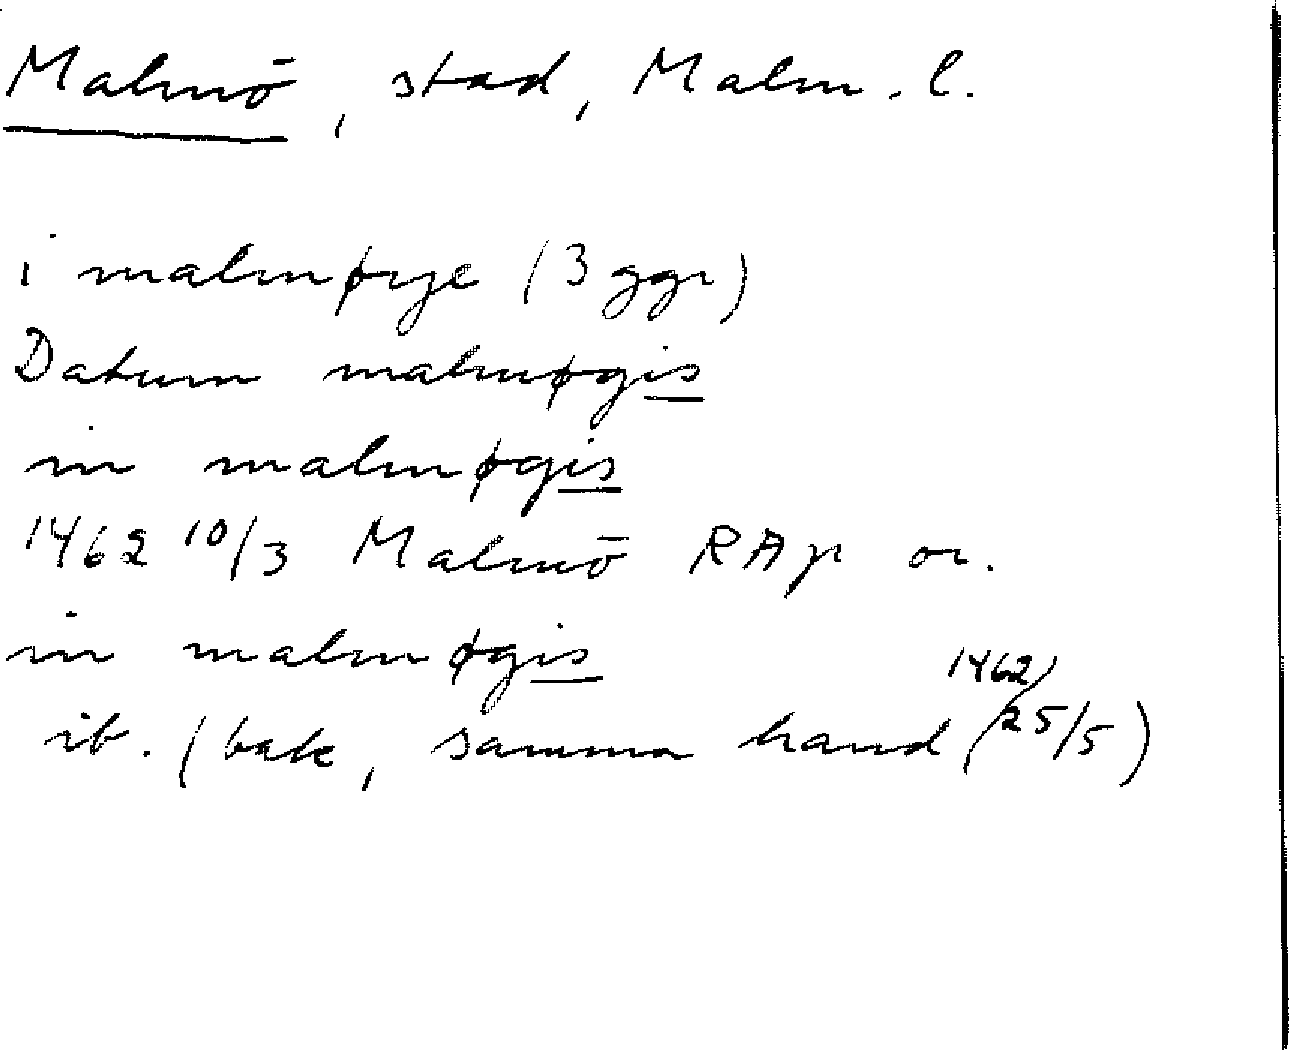 Malmö, stad, Malm. l.
i malmøye (3 ggr)
Datum malmøgis
in malmøgis
1462 10/3 Malmö RAp or.
in malmøgis
ib. (bak, samma hand (1462 25/5)